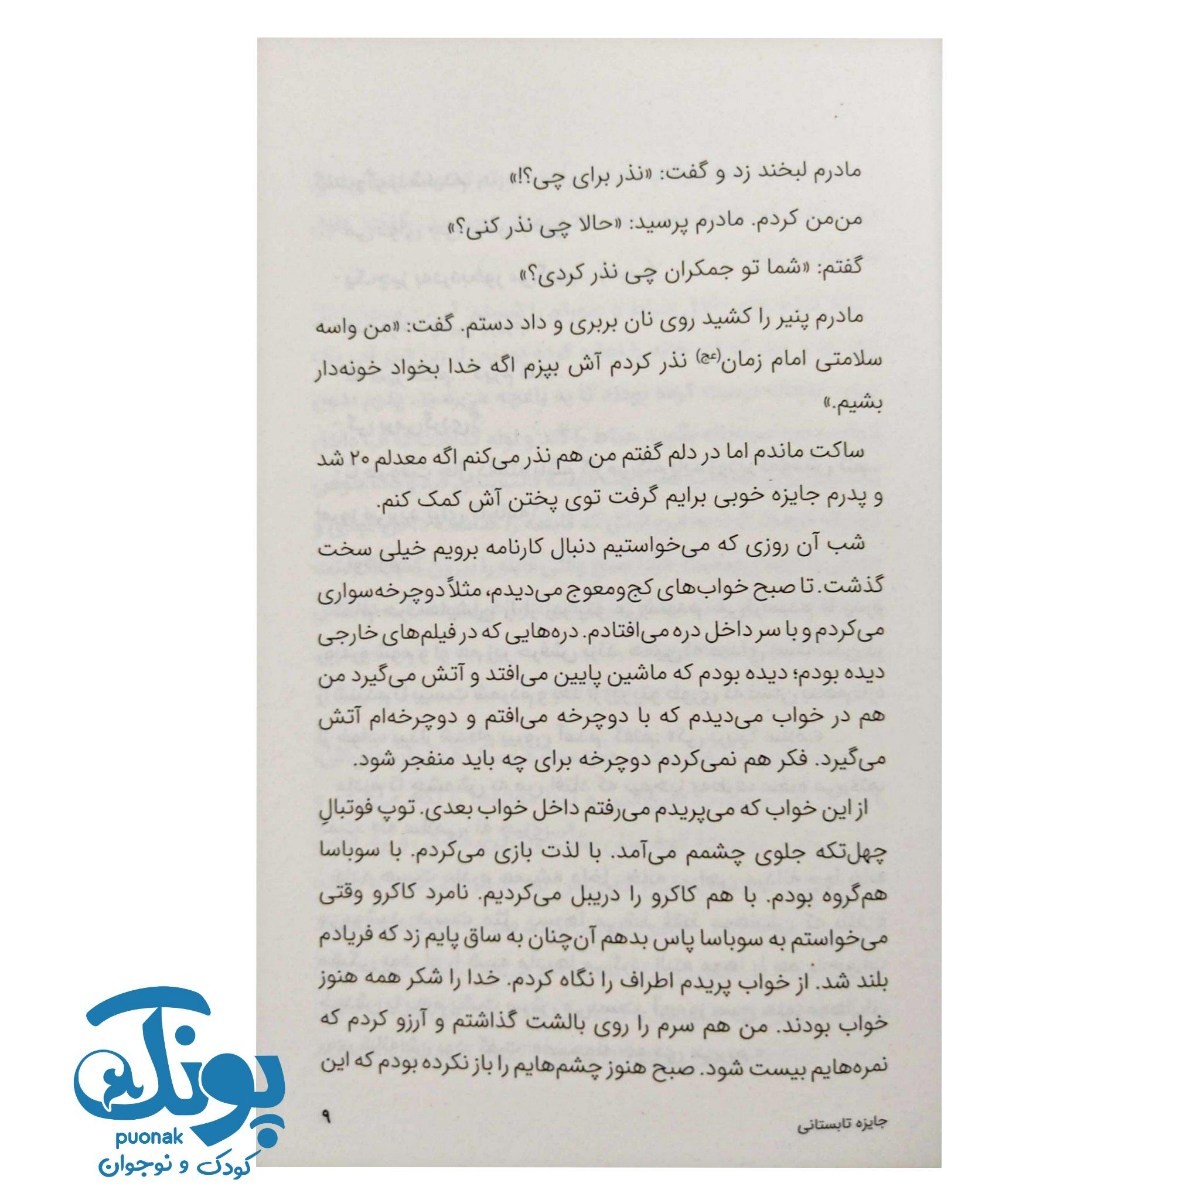 مادرم لبخند زد و گفت: «نذر برای چی؟!»
من‌من کردم. مادرم پرسید: «حالا چی نذر کنی؟»
گفتم: «شما تو جمکران چی نذر کردی؟»
مادرم پنیر را کشید روی نان بربری و داد دستم. گفت: «من واسه
سلامتی امام زمان(عج) نذر کردم آش بپزم اگه خدا بخواد خونه‌دار
بشیم.»
ساکت ماندم اما در دلم گفتم من هم نذر می‌کنم اگه معدلم ۲۰ شد
و پدرم جایزه خوبی برایم گرفت توی پختن آش کمک کنم.
شب آن روزی که می‌خواستیم دنبال کارنامه برویم خیلی سخت
گذشت. تا صبح خواب‌های کج‌ومعوج می‌دیدم، مثلاً دوچرخه‌سواری
می‌کردم و با سر داخل دره می‌افتادم. دره‌هایی که در فیلم‌های خارجی
دیده بودم؛ دیده بودم که ماشین پایین می‌افتد و آتش می‌گیرد من
هم در خواب می‌دیدم که با دوچرخه می‌افتم و دوچرخه‌ام آتش
می‌گیرد. فکر هم نمی‌کردم دوچرخه برای چه باید منفجر شود.
از این خواب که می‌پریدم می‌رفتم داخل خواب بعدی. توپ فوتبالِ
چهل‌تکه جلوی چشمم می‌آمد. با لذت بازی می‌کردم. با سوباسا
هم‌گروه بودم. با هم کاکرو را دریبل می‌کردیم. نامرد کاکرو وقتی
می‌خواستم به سوباسا پاس بدهم آن‌چنان به ساق پایم زد که فریادم
بلند شد. از خواب پریدم اطراف را نگاه کردم. خدا را شکر همه هنوز
خواب بودند. من هم سرم را روی بالشت گذاشتم و آرزو کردم که
نمره‌هایم بیست شود. صبح هنوز چشم‌هایم را باز نکرده بودم که این
جایزه تابستانی
۹
پونک
puonak
کودک و نوجوان